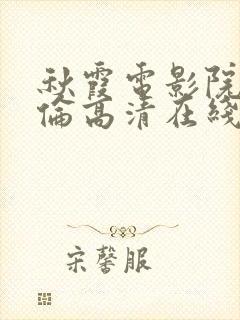 秋霞電影院
倫高清在綫
宋馨服